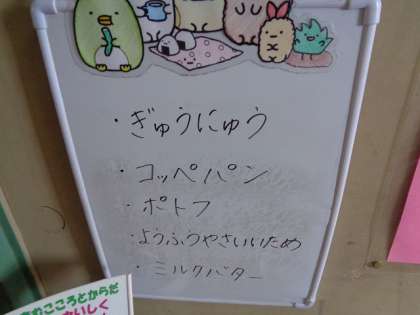 ・ぎゅうにゅう
・コッペパン
・ポトフ
・ようふうやさいいため
・ミルクバター
こころとからだ
おいしく